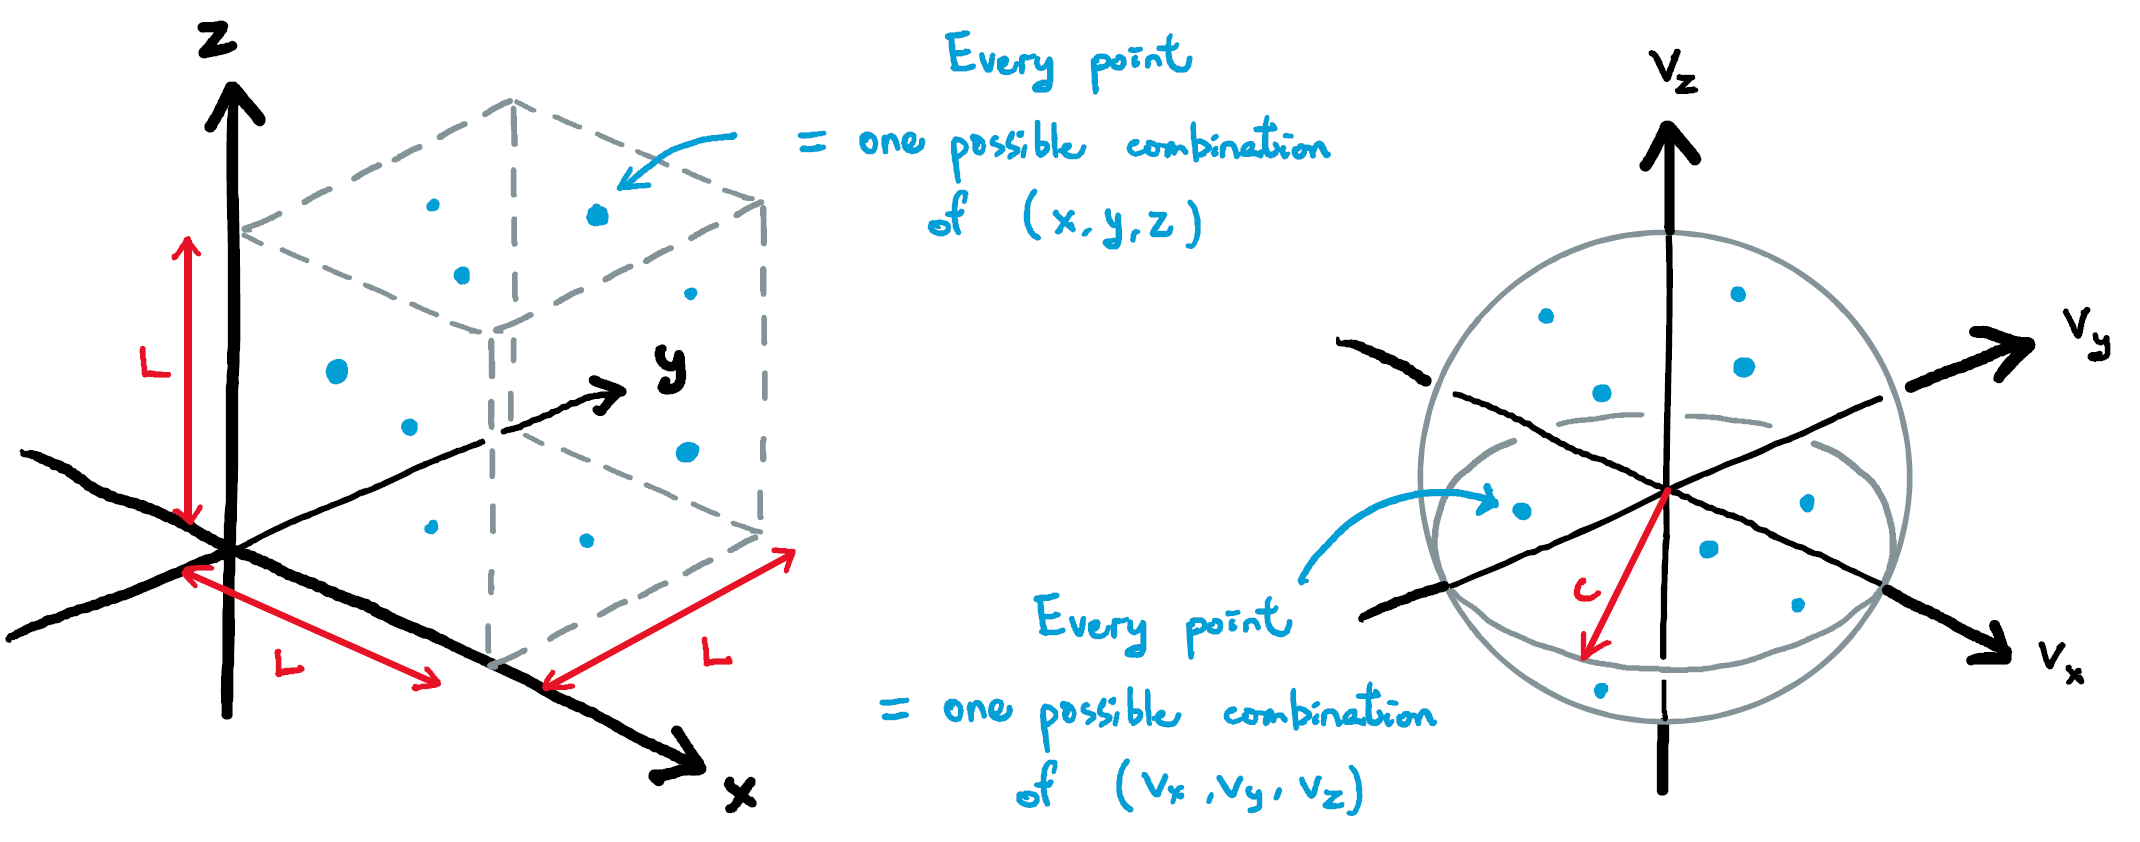 z
Every point
= one possible combination
of (x, y, z)
L
y
L
L
x
Vz
Vy
c
Vx
Every point
= one possible combination
of (Vx, Vy, Vz)